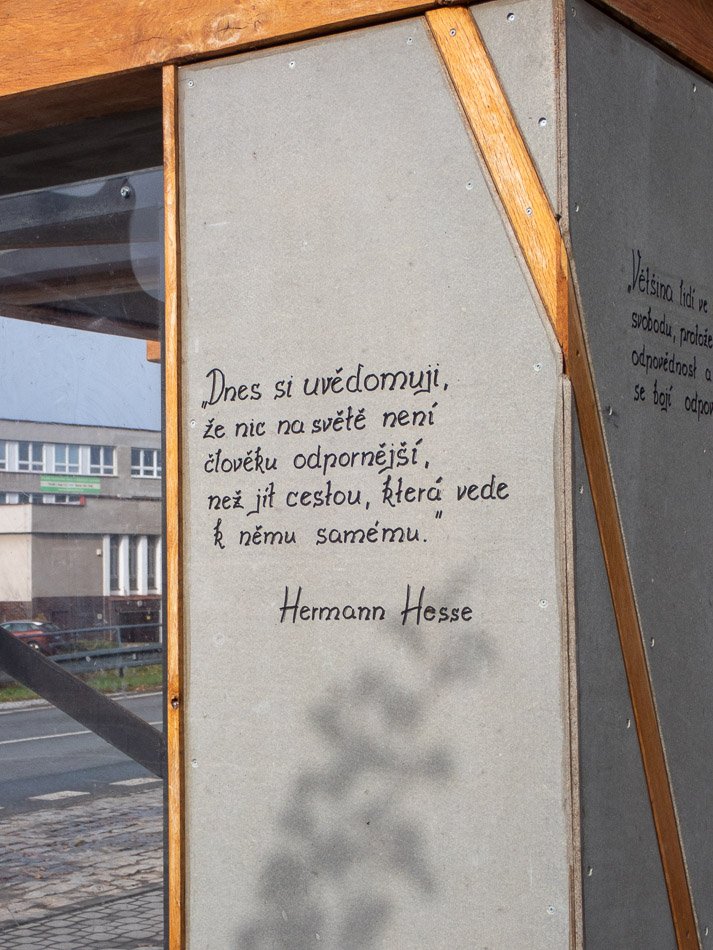 „Dnes si uvědomuji,
že nic na světě není
člověku odpornější,
než jít cestou, která vede
k němu samému.“
Hermann Hesse
„Většina lidí ve
svobodu, protože
odpovědnost a
se bojí